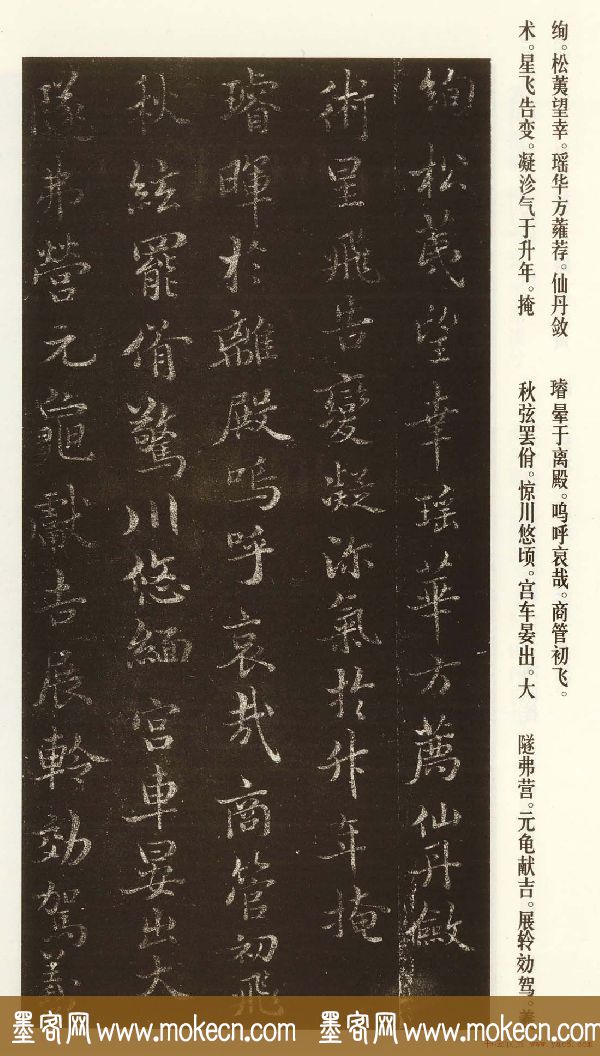 绚。松萸望幸。瑶华方蕹荐。仙丹敛
术。星飞告变。凝沴气于升年。掩
璿晕于离殿。呜呼哀哉。商管初飞。
秋弦罢佾。惊川悠顷。宫车晏出。大
隧弗营。元龟献吉。展軨効驾。
絢松茂望幸瑶華方薦仙丹斂
術星飛告變凝沴氣於升年掩
璿暉於離殿嗚呼哀哉商管初飛
秋絃罷佾驚川悠緬宮車晏出大
隧弗營元龜獻吉展軨効駕
墨客网www.mokecn.com 墨客网www.mokecn.com